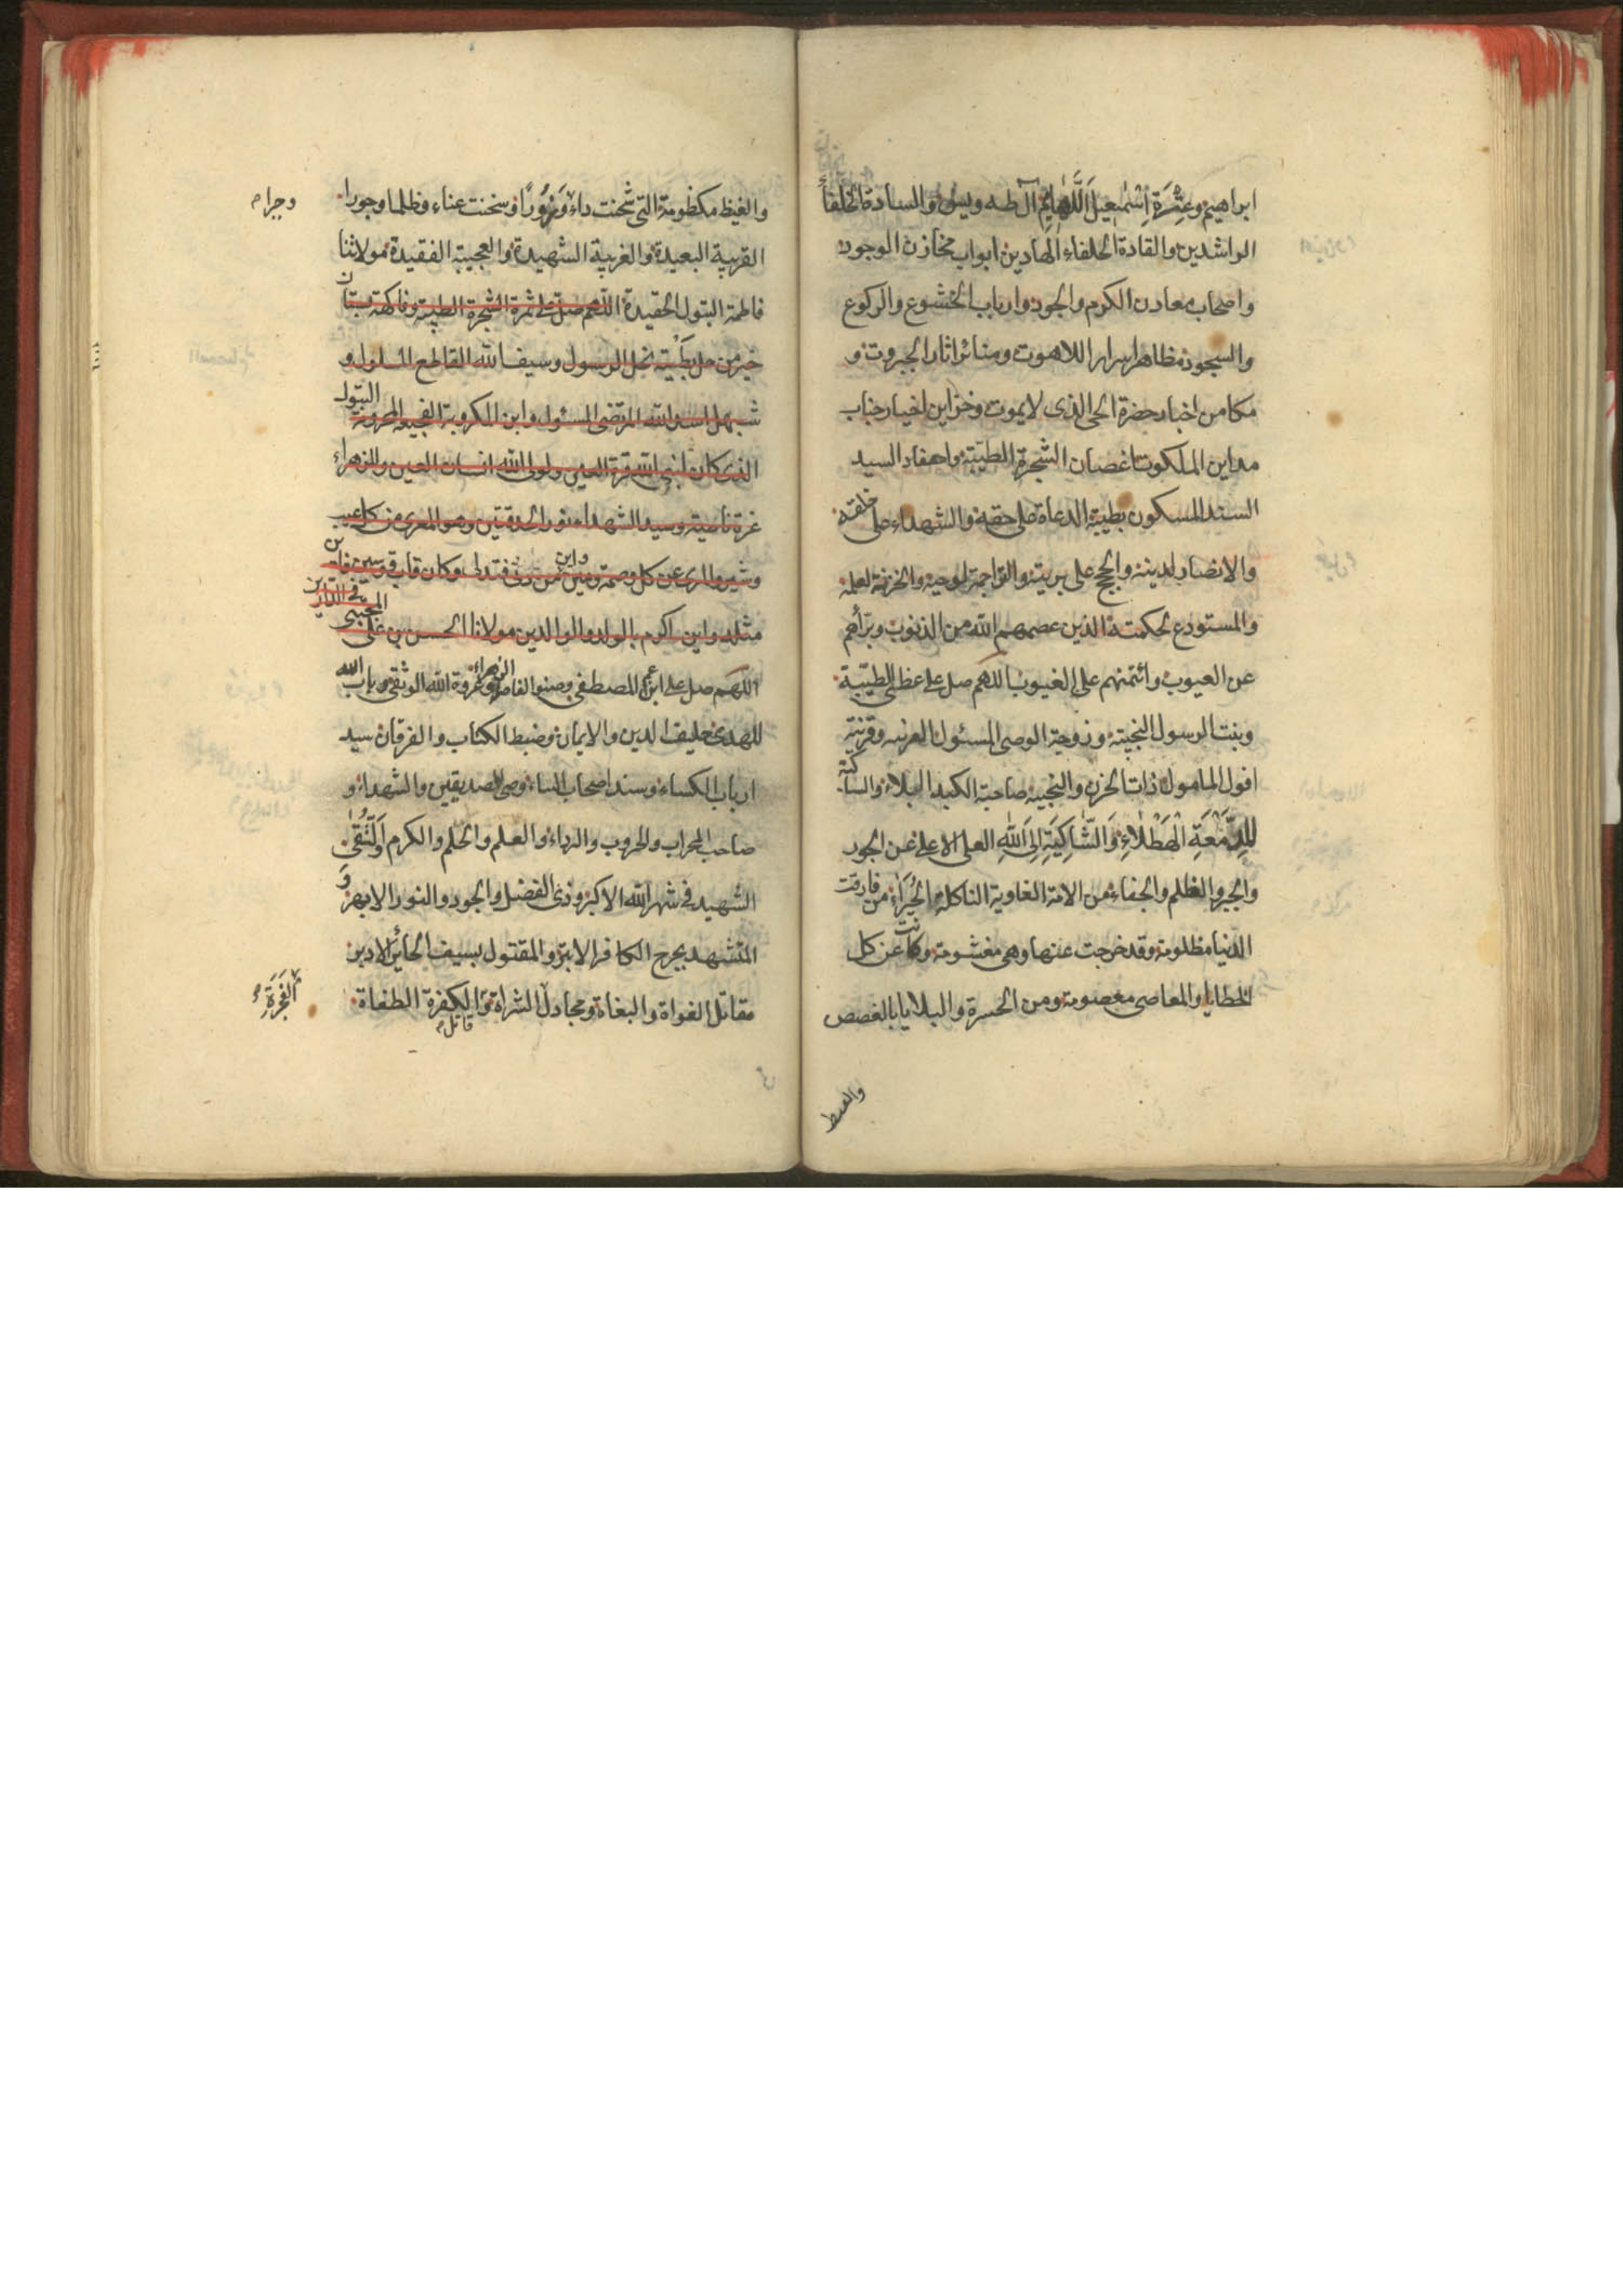 ابراهيم وعِتْرَةِ اِسْمٰعِيلَ اَللّٰهَائِمِ آل طه ويس والسادة الخلفاء
الراشدين والقادة الخلفاء الهادين ابواب مخازن الوجود
واصحاب معادن الكرم والجود وارباب الخشوع والركوع
والسجود مظاهر اسرار اللاهوت ومناثر اثار الجبروت و
مكامن اخبار حضرة الحى الذى لا يموت وخزاين اخيار جناب
مداين الملكوت اغصان الشجرة الطيّبة واحفاد السيد
السند المسكون بطيبة الدعاة على حقه والشهداء على خلقه
والانصار لدينه والحجج على بريته والتراجمة لوحيه والخزنة لعلمه
والمستودع لحكمته الذين عصمهم الله من الذنوب وبرّأهم
عن العيوب وائتمنهم على الغيوب اللهم صل على عظلى الطيّبة
وبنت الرسول النجيبة وزوجة الوصى المسئول وقرينة
افول المامول ذات الحزن والنحيبه صاحبة الكبد البلاء والساكبة
لِلدَّمْعَةِ الْهَطْلَاءِ وَالشَّاكِيَةِ اِلَى اللّٰهِ العلى الاعلى عن الجور
والجبر والظلم والجفاء من الامة الغاوية الناكلة من فارقت
الدنيا مظلومة وقد خرجت عنها وهى مغشومة وكانت عن كل
الخطايا والمعاصى معصومة ومن الحسرة والبلايا بالغصص
والغيظ
والغيظ مكظومة التى شحنت داء وَزُورًا وسخنت عناء وظلما وجورا
وجبرا م
القريبة البعيدة والغريبة الشهيدة والعجيبة الفقيدة مولاتنا
فاطمة البتول الحقيدة اللهم صلّ على ثمرة الشجرة الطيبة وفاكهة بستان
خير من حل بطَيْبة نجل الرسول وسيف الله القاطع المسلول و
شبهل اسد الله المرتضى المسئول وابن المكروبة الفجيعة المحزونة البتول
الذى كان لنبى الله قرة العين ولولى الله انسان العين وللزهراء
غرة ناصية وسيد الشهداء نور الحدقتين وهو المعرى من كل عيب
وشين والبرى عن كل وصمة ومين وابن من دنى فتدلى وكان قاب قوسين فاين
مثله واين اكرم بالولد والوالدين مولانا الحسن بن على المجتبى فى الدارين
اللهم صل على ابن عم المصطفى وصنو الفاطمة الزهراء وعروة الله الوثقى وباب الله
للهدى حليف الدين والايمان وضبط الكتاب والفرقان سيد
ارباب الكساء وسند اصحاب المساء وصى الصديقين والشهداء و
صاحب المحراب والحروب والرداء والعلم والحلم والكرم وَالتُّقىٰ
الشهيد فى شهر الله الاكبر وذى الفضل والجود والنور الابهر وَ
المتشهد بجرح الكافر الابتر والمقتول بسيف الخائن الادبر
مقاتل الغواة والبغاة ومجادل الشراة وقاتل الكفرة الطغاة
الفَجَرَةِ م